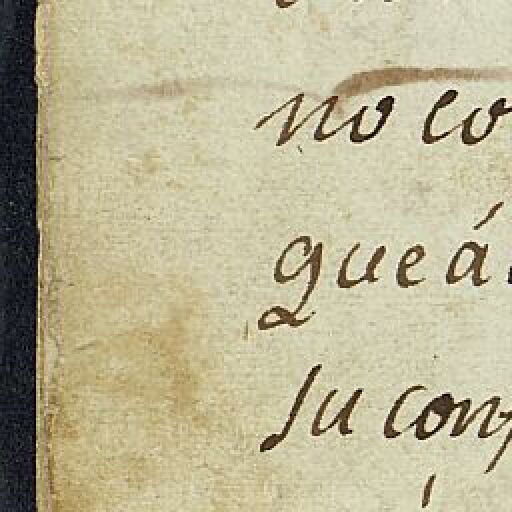 no co
que á
su conf